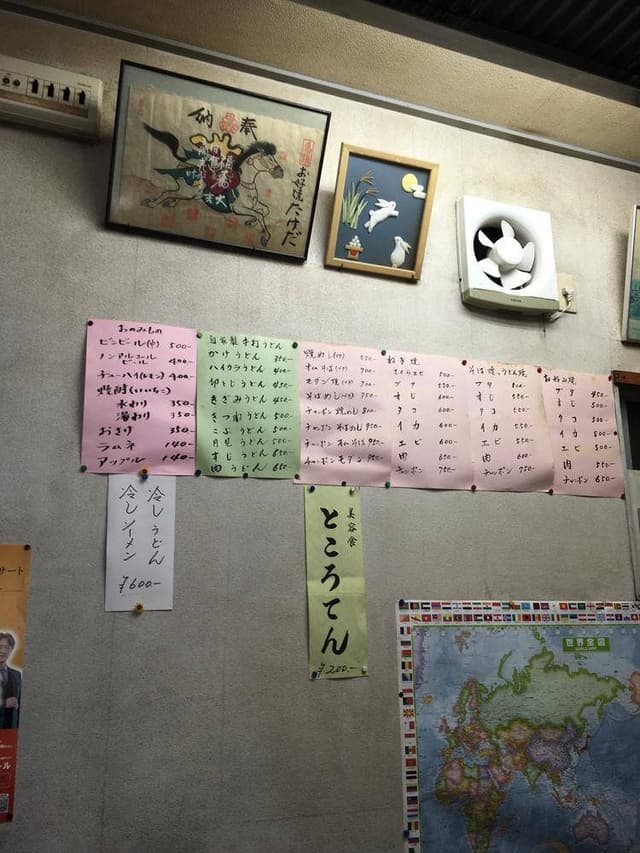 奉
納
お好焼 たけだ
おのみもの
ビンビール(中) 500-
ノンアルコール
ビール 400-
チューハイ(レモン) 400-
焼酎(いいちこ)
水わり 350-
湯わり 350-
おさけ 350-
ラムネ 140-
アップル 140-
自家製手打うどん
かけうどん 350-
ハイカラうどん 400-
卵とじうどん 450-
きざみうどん 450-
きつねうどん 500-
こぶうどん 500-
月見うどん 500-
すじうどん 650-
肉うどん 650-
焼めし(ブタ)
オムそば(ブタ) 700-
モダン焼(ブタ) 700-
そばめし(ブタ)
チャンポン焼めし
チャンポンそばめし 950-
チャンポンオムそば 950-
チャンポンモダン 950-
ねぎ焼
ブタ
すじ
タコ
イカ
エビ
肉
チャンポン 750-
そば焼、うどん焼
ブタ 500-
すじ 550-
タコ
イカ 550-
エビ 550-
肉 600-
チャンポン 750-
お好み焼
ブタ 450-
すじ 500-
タコ 500-
イカ 500-
エビ 500-
肉 550-
チャンポン 650-
冷しうどん
冷しソーメン
¥600-
美容食
ところてん
¥200-
世界全図
サート
ール